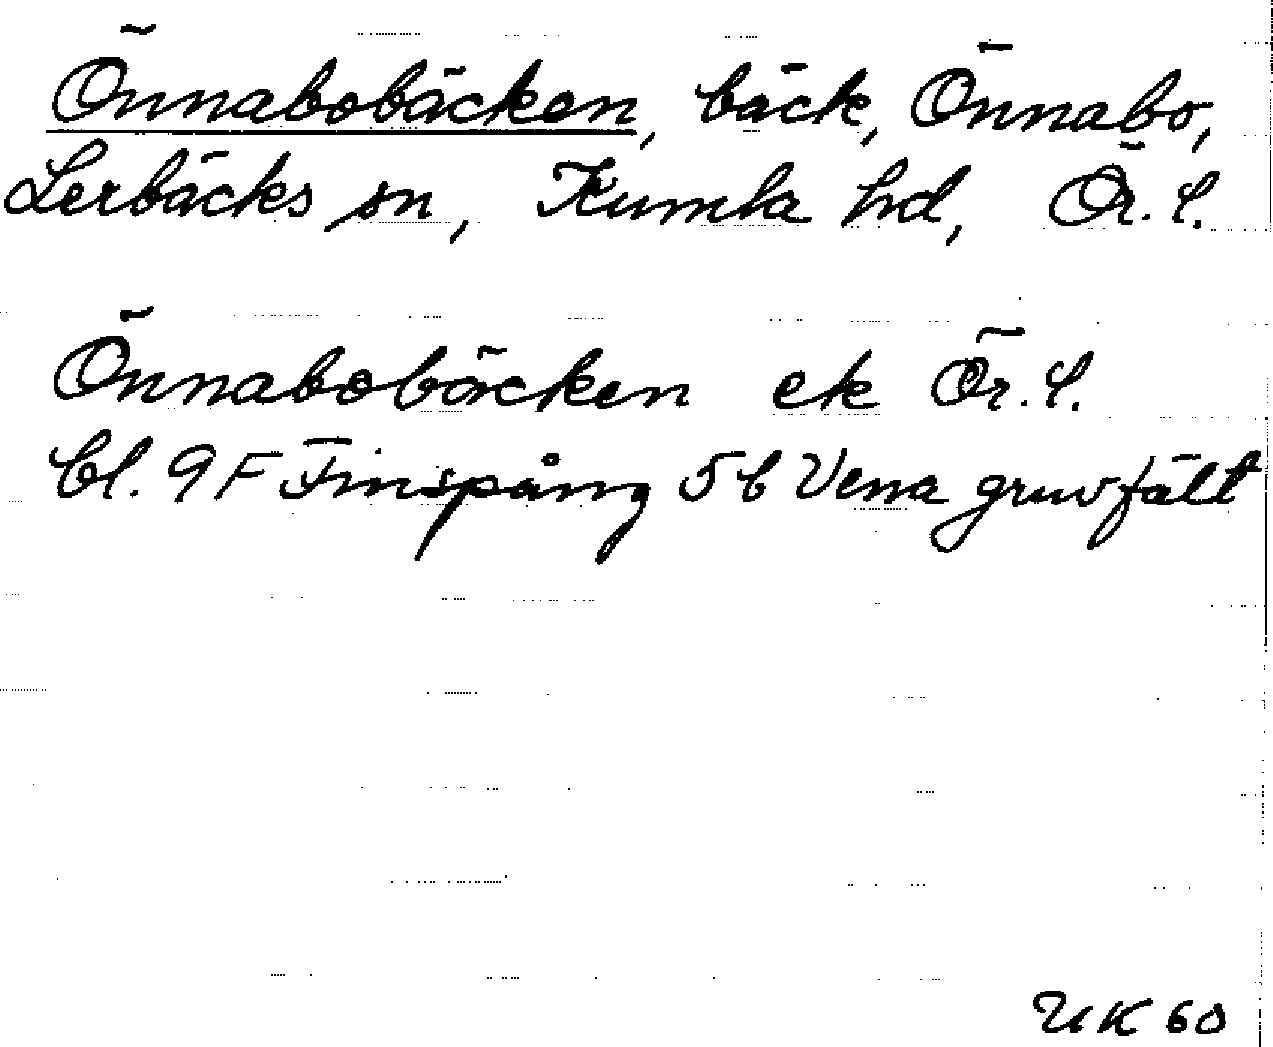 Önnabobäcken, bäck, Önnabo,
Lerbäcks sn, Kumla hd, Ör. l.
Önnabobäcken ek Ör. l.
bl. 9 F Finspång 5 b Vena gruvfält
UK 60